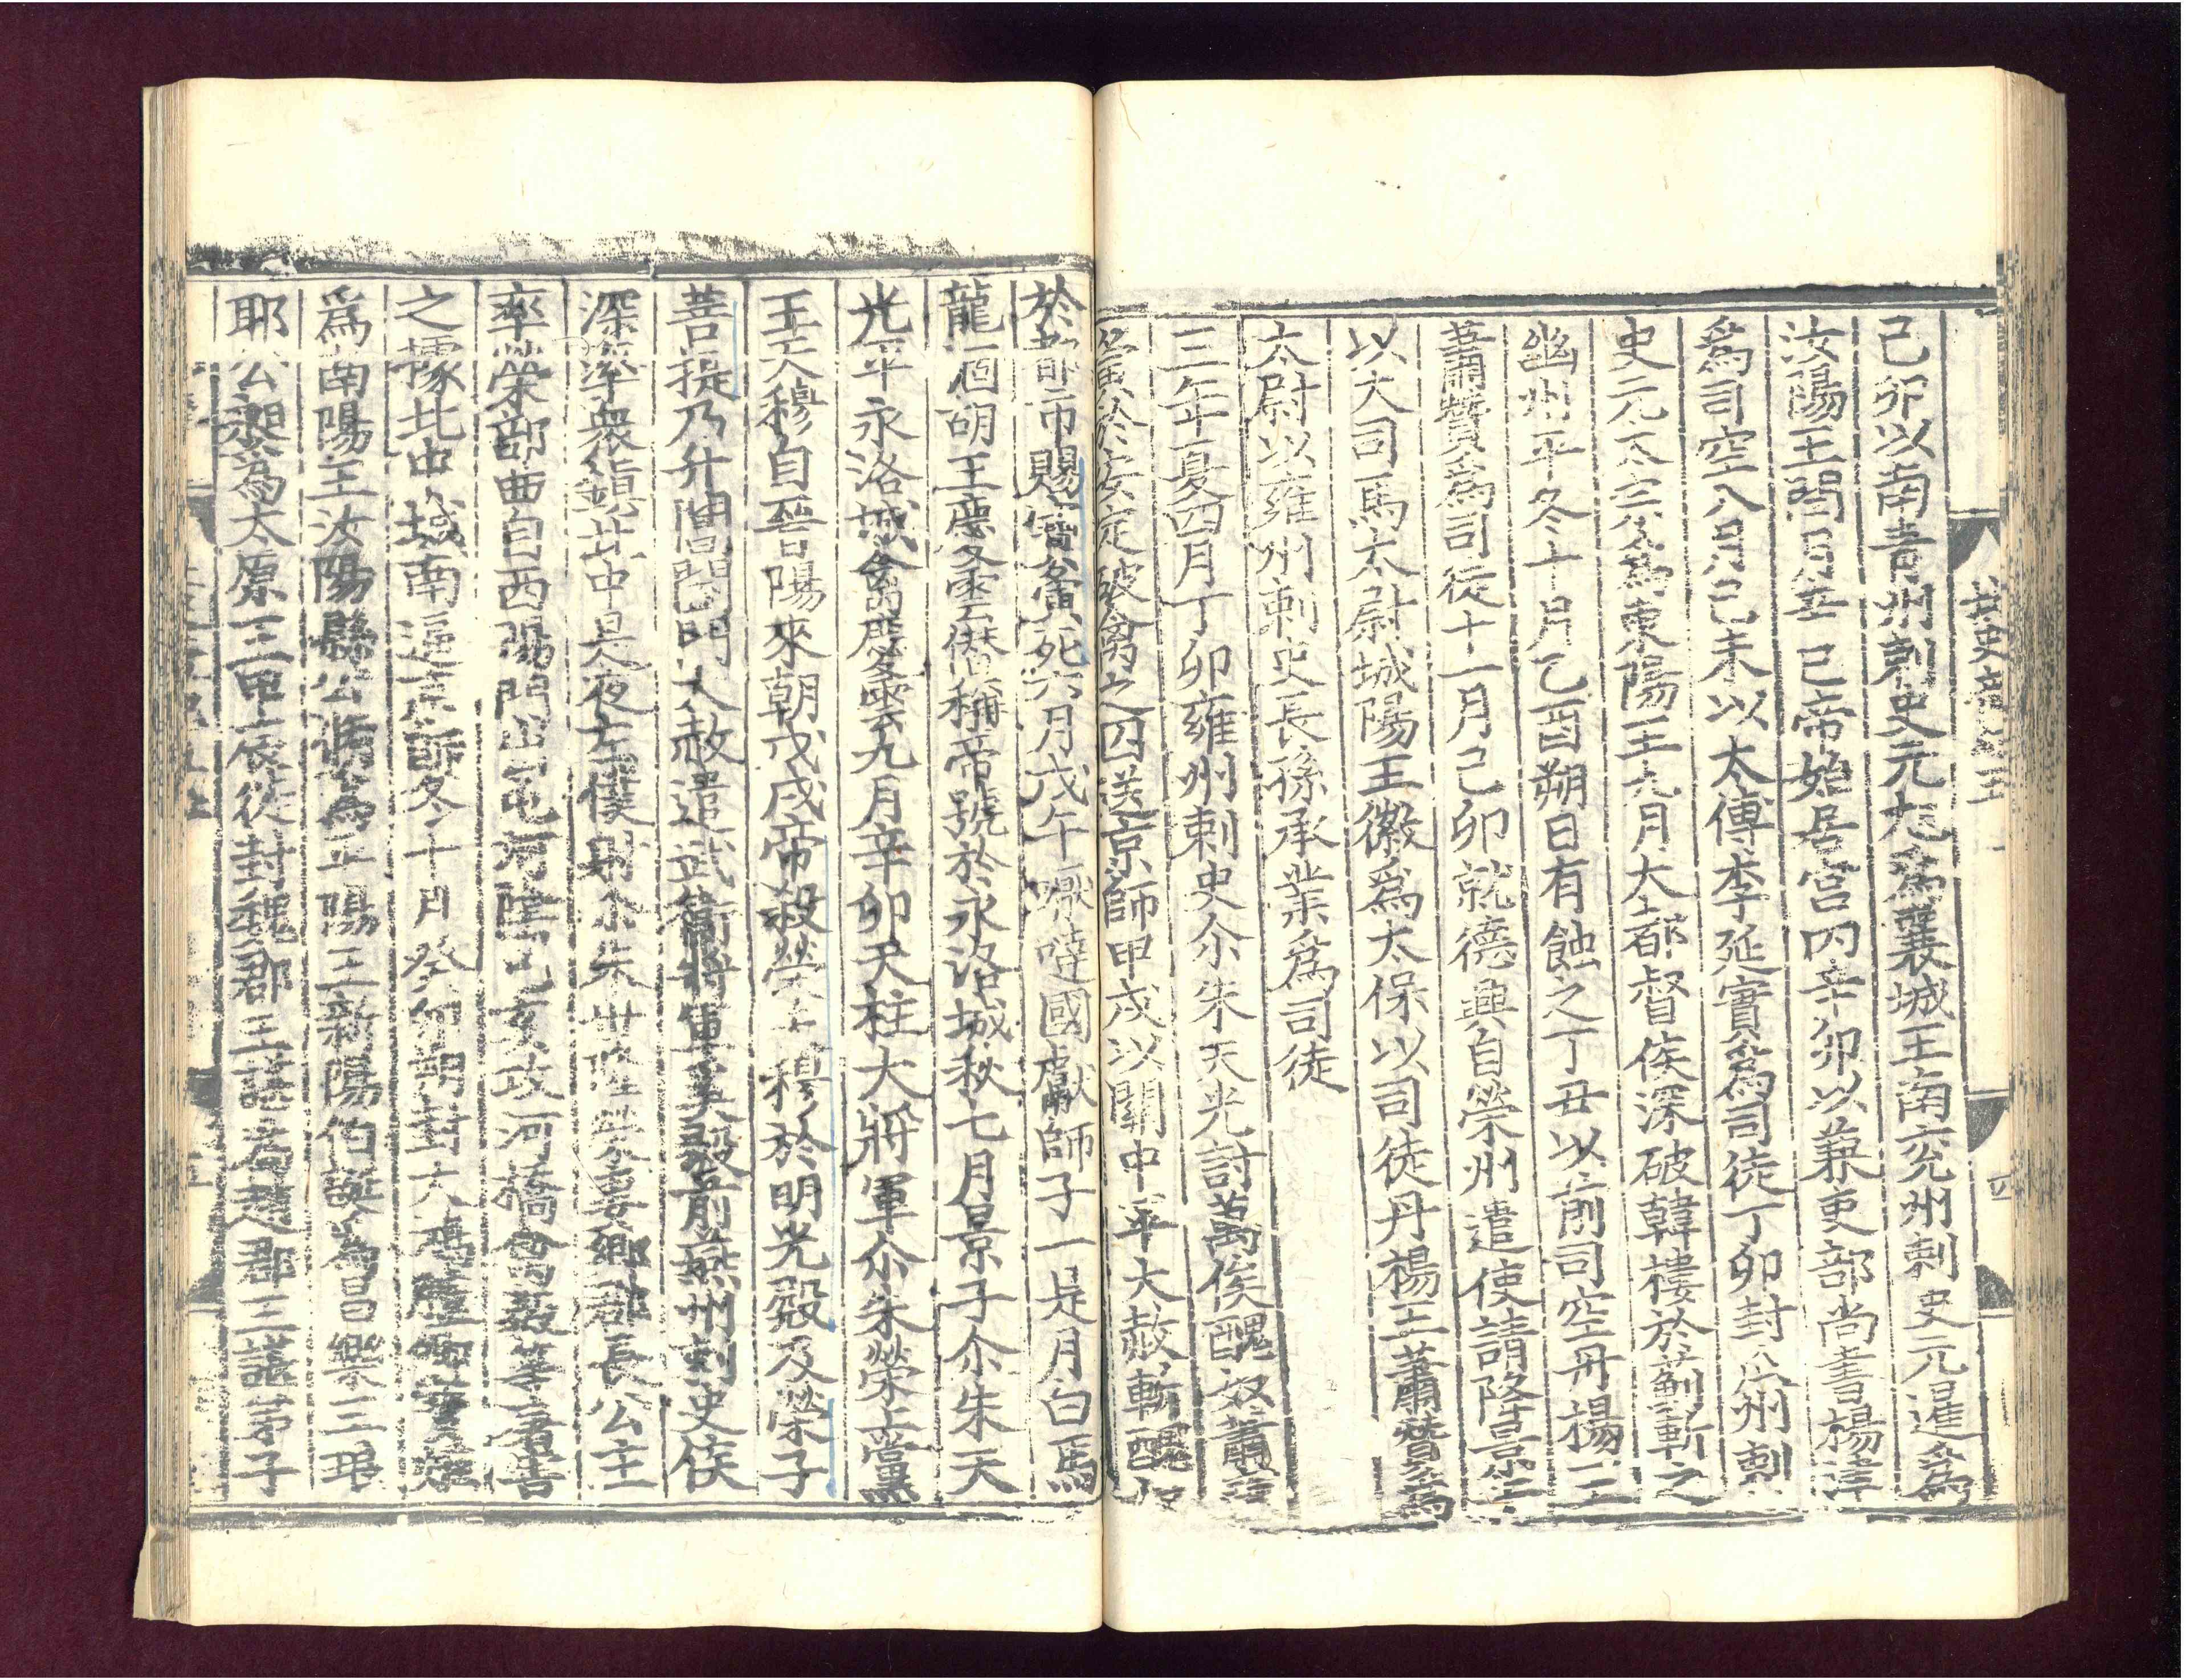 己卯以南青州刺史元旭爲襄城王南兖州刺史元暹爲
汝陽王閏月辛巳帝始居宫内辛卯以兼吏部尚書楊津
爲司空八月己未以太傅李延實爲司徒丁卯封瓜州刺
史元太宗爲東陽王九月大都督侯深破韓樓於薊斬之
幽州平冬十月乙酉朔日有蝕之丁丑以前司空丹楊王
蕭贊爲司徒十一月己卯就德興自榮州遣使請降景午
以大司馬太尉城陽王徽爲太保以司徒丹楊王蕭贊爲
太尉以雍州刺史長孫承業爲司徒
三年夏四月丁卯雍州刺史尒朱天光討萬俟醜奴蕭寶
夤於安定破禽之囚送京師甲戌以關中平大赦斬醜奴
於都市賜寶夤死六月戊午嚈噠國獻師子一是月白馬
龍涸胡王慶雲僭稱帝號於永洛城秋七月景子尒朱天
光平永洛城禽慶雲九月辛卯天柱大將軍尒朱榮上黨
王天穆自晉陽來朝戊戌帝殺榮天穆於明光殿及榮子
菩提乃升閶闔門大赦遣武衛將軍奚毅前燕州刺史侯
深率衆鎮北中是夜左僕射尒朱世隆榮妻鄉郡長公主
率榮部曲自西陽門出屯河陰己亥攻河橋禽毅等害
之據北中城南逼京師冬十月癸卯朔封大鴻臚卿寶炬
爲南陽王汝陽縣公脩爲平陽王新陽伯誕爲昌樂王琅
耶公昶爲太原王甲辰徙封魏郡王諶爲趙郡王諶弟子